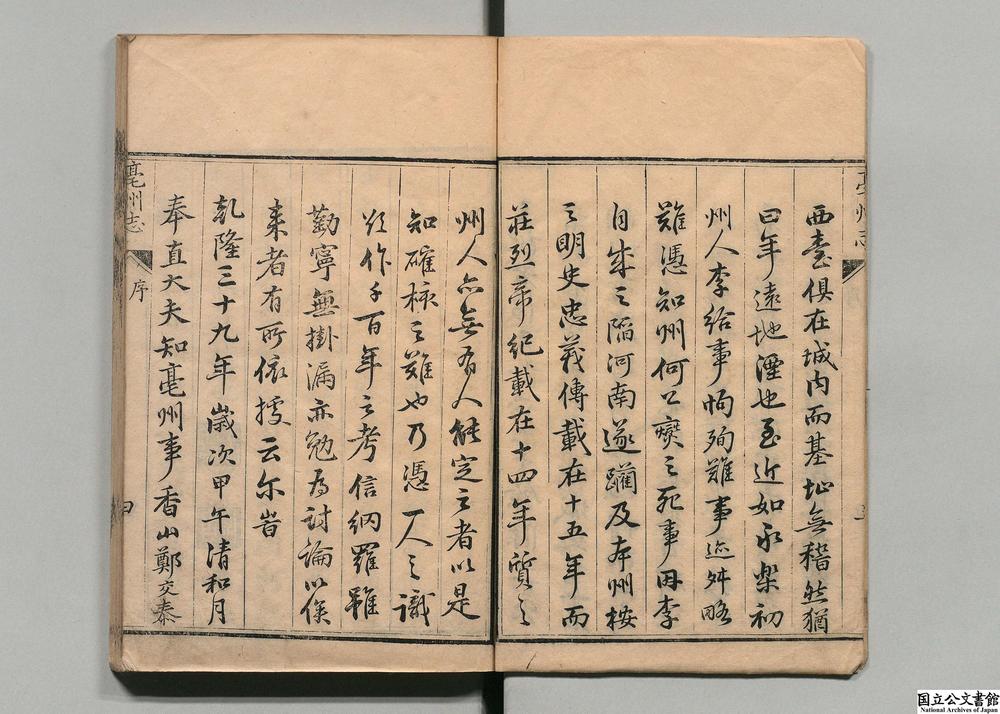 西臺俱在城內而基址無稽然猶
曰年遠地湮也至近如永樂初
州人李給事恂殉難事迹舛略
難憑知州何公燮之死事因李
自成之陷河南遂躪及本州按
之明史忠義傳載在十五年而
莊烈帝紀載在十四年質之
州人亦無有人能定之者以是
知確核之難也乃憑一人之識
欲作千百年之考信網羅雖
勤寧無掛漏亦勉為討論以俟
來者有所依據云尔旹
乾隆三十九年歲次甲午清和月
奉直大夫知亳州事香山鄭交泰
亳州志
序
四
亳州志
国立公文書館
National Archives of Japan